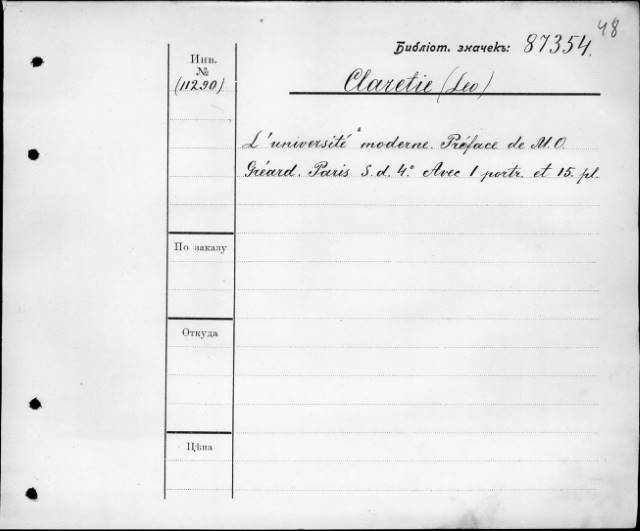 48
Библіот. значекъ: 87354.
Инв.
№
(11290)
Claretie (Leo)
L'université moderne. Préface de M. O.
Gréard. Paris S. d. 4° Avec 1 portr. et 15. pl.
По заказу
Откуда
Цѣна